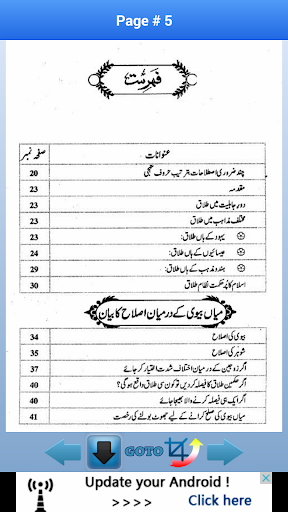 Page # 5
فہرست
عنوانات صفحہ نمبر
چند ضروری اصطلاحات بترتیب حروف تہجی 20
مقدمہ 23
دورِ جاہلیت میں طلاق 23
مختلف مذاہب میں طلاق 23
یہود کے ہاں طلاق: 23
عیسائیوں کے ہاں طلاق: 24
ہندو مذہب کے ہاں طلاق: 29
اسلام کا پُر حکمت نظام طلاق 30
میاں بیوی کے درمیان اصلاح کا بیان
بیوی کی اصلاح 34
شوہر کی اصلاح 35
اگر زوجین کے درمیان اختلاف شدت اختیار کر جائے 37
اگر حکمین طلاق کا فیصلہ کر دیں تو کون سی طلاق واقع ہو گی؟ 40
اگر ایک ہی فیصلہ کرنے والا بھیجا جائے 40
میاں بیوی کی صلح کرانے کے لیے جھوٹ بولنے کی رخصت 41
GOTO
Update your Android !
>>>> Click here